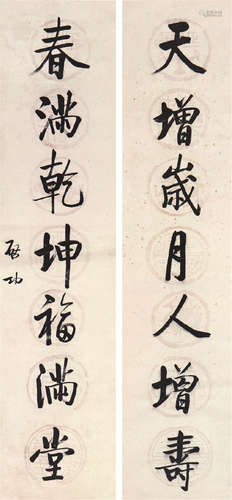 天增歲月人增壽
春滿乾坤福滿堂
啟功